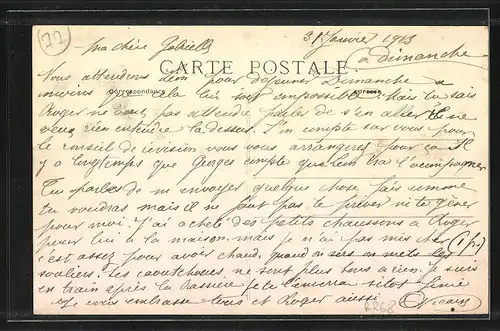 22
31 Janvier 1913
ma chère Gabrielle
à dimanche
CARTE POSTALE
Vous attendrons donc pour déjeuner Dimanche a
Correspondance Adresse
moins que cela lui soit impossible Mais tu sais
Roger ne veut pas attendre parler de s'en aller il ne
veut rien entendre la dessus. L'on compte sur vous pour
le conseil de révision vous vous arrangerez pour ça Il
y a longtemps que Georges compte que l'accompagner
Tu parles de m envoyer quelque chose fais comme
tu voudras mais il ne faut pas te priver ni te gêner
pour moi. J'ai acheté des petits chaussons à Roger
pour lui a la maison, mais je n'ai pas mis cher
c'est assez pour avoir chaud, quand on sors on mets les
souliers. les caoutchoucs ne sont plus bons a rien. je suis
en train après la je te l'enverrai sitot finie
Je vous embrasse tous et Roger aussi
R268